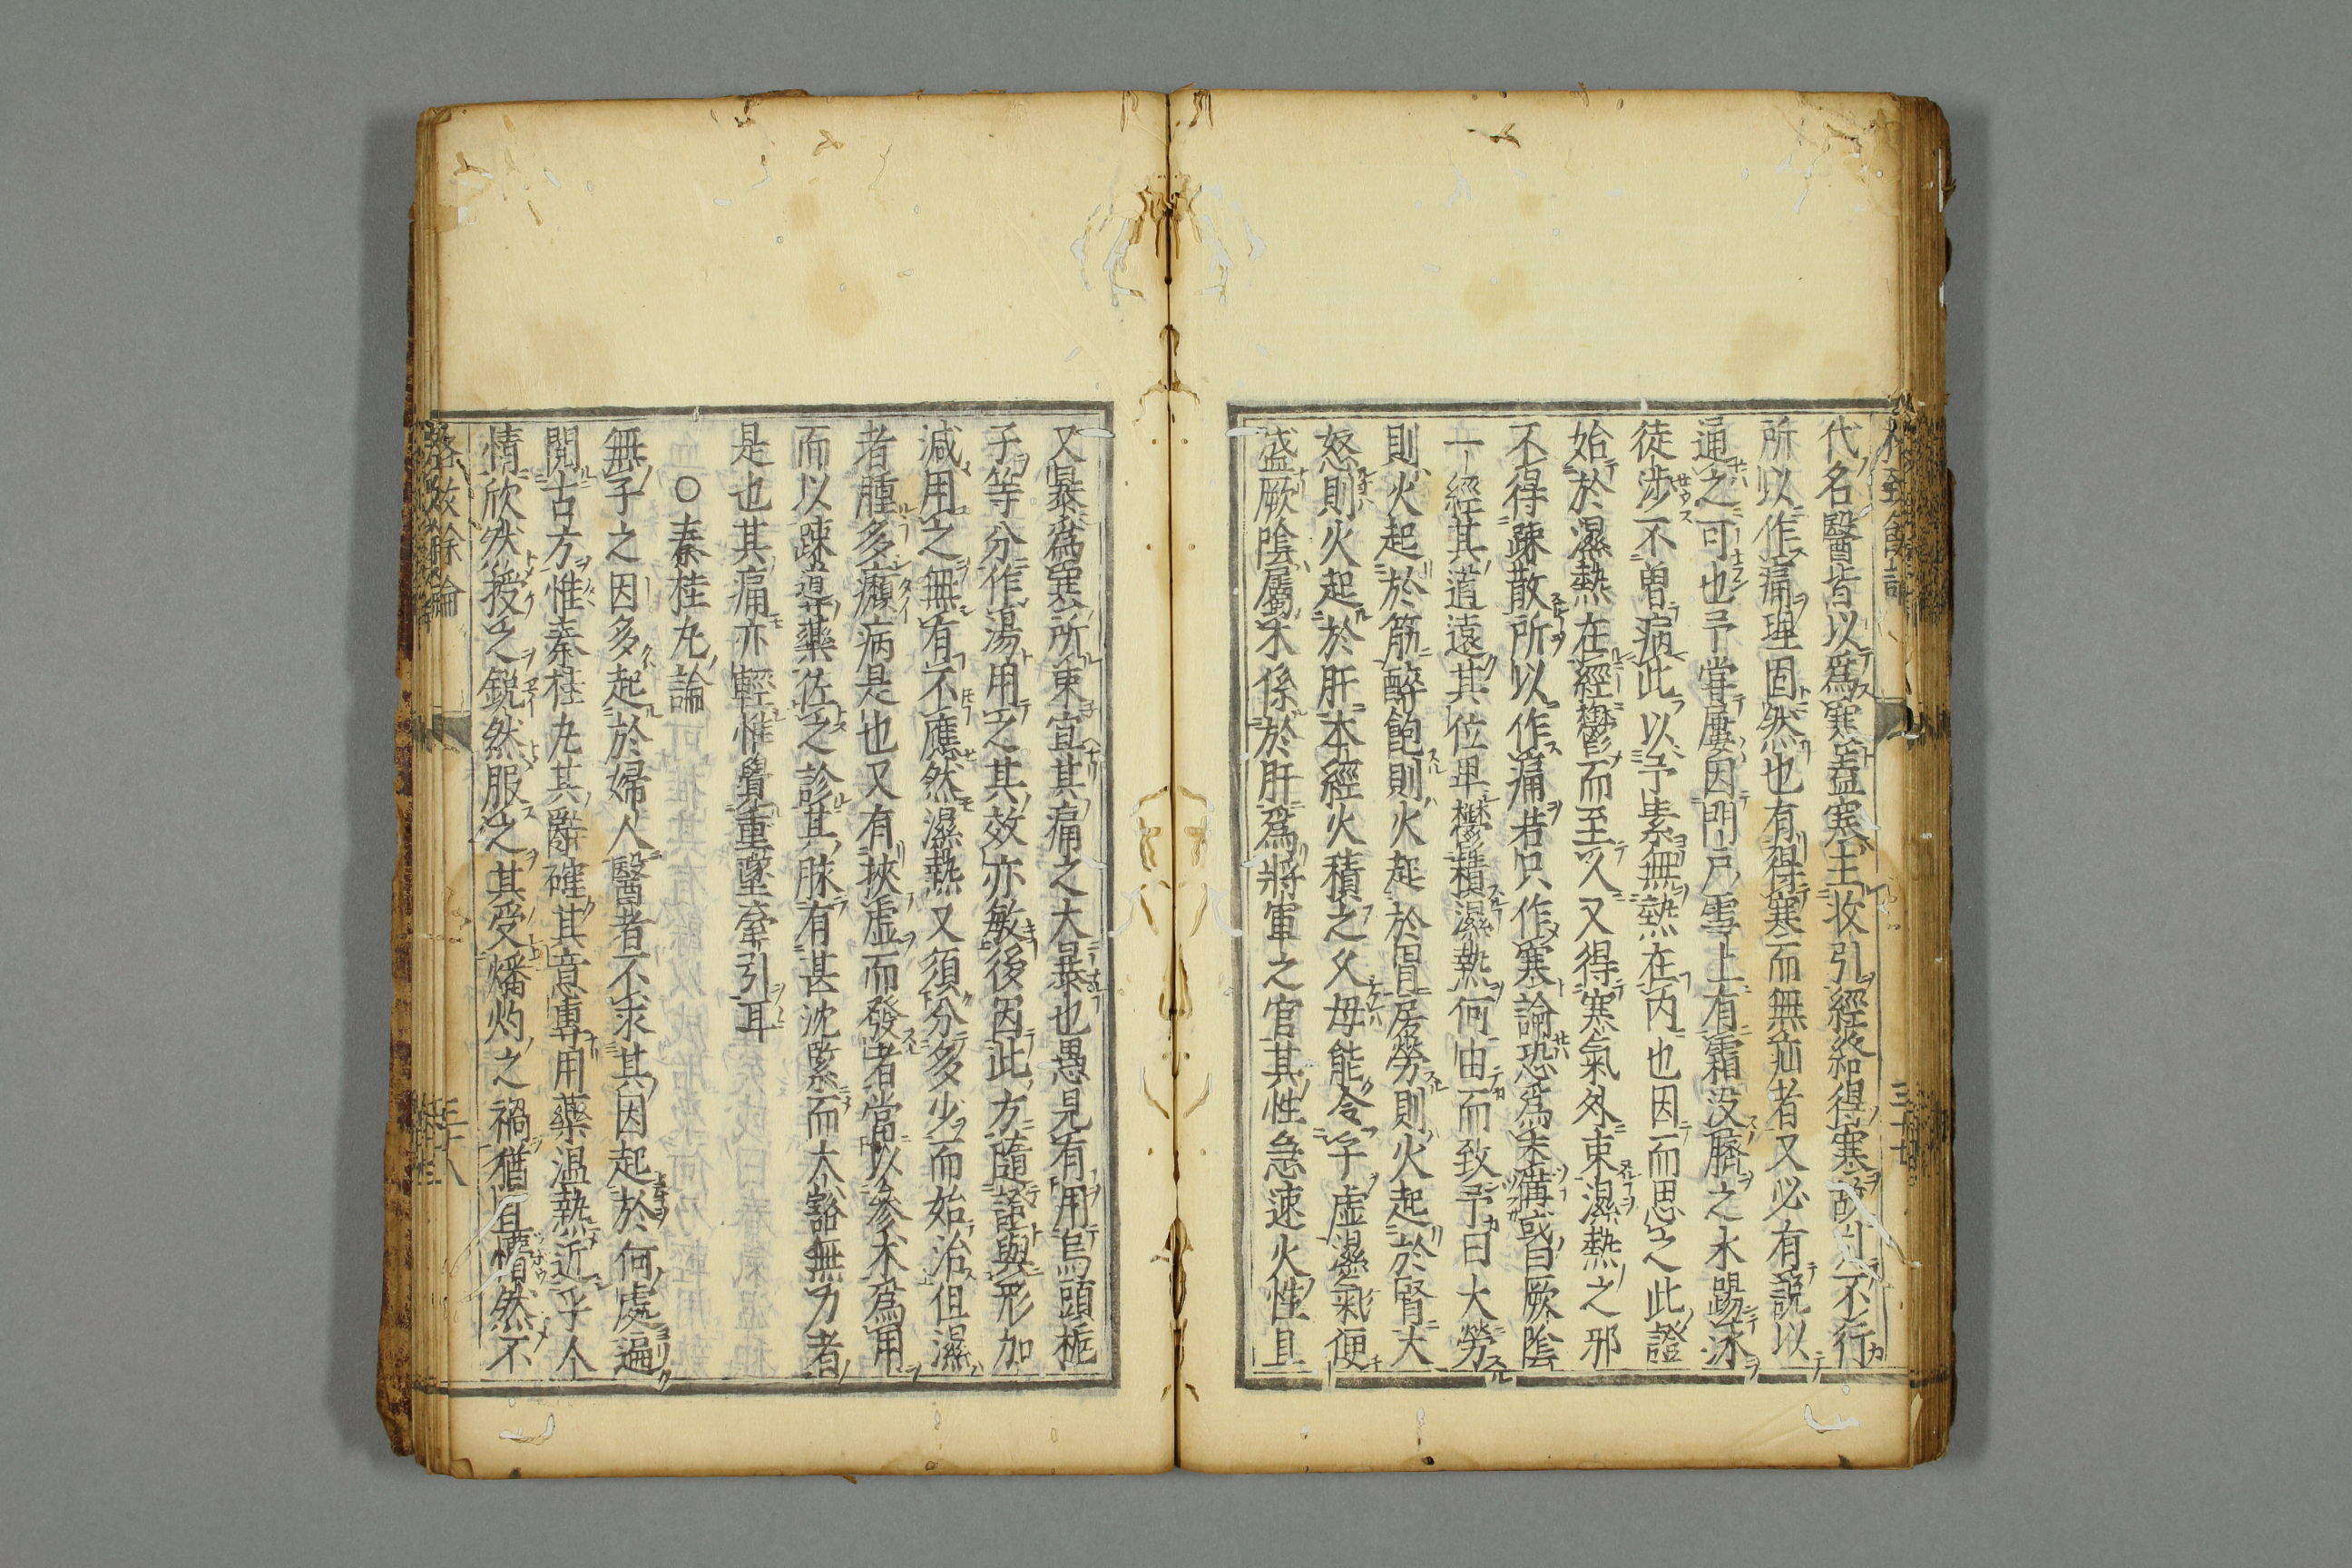 代名醫皆以爲寒蓋寒主收引經絡得寒故引不行
所以作痛理固然也有得寒而無疝者又必有說以
通之可也予嘗屢因門戶雪上有霜没臍之水踢氷
徒涉不曽病此以予素無熱在内也因而思之此證
始於濕熱在經鬱而至久又得寒氣外束濕熱之邪
不得踈散所以作痛若只作寒論恐爲未備或曰厥陰
一經其道遠其位卑鬱積濕熱何由而致予曰大勞
則火起於筋醉飽則火起於胃房勞則火起於腎大
怒則火起於肝本經火積之久母能令子虚濕氣便
盛厥陰屬木係於肝爲將軍之官其性急速火性且
三十七
又暴爲寒所束宜其痛之大暴也愚見有用烏頭梔
子等分作湯用之其效亦敏後因此方隨證與形加
減用之無有不應然濕熱又須分多少而始治但濕
者腫多㿗病是也又有挾虚而發者當以參术爲用
而以踈導藥佐之診其脉有甚沈緊而大豁無力者
是也其痛亦輕惟覺重墜牽引耳
○秦桂丸論
無子之因多起於婦人醫者不求其因起於何處遍
閲古方惟秦桂丸其辭確其意專用藥温熱近乎人
情欣然授之銳然服之其受燔灼之禍猶且懵然不
格致餘論
三十八